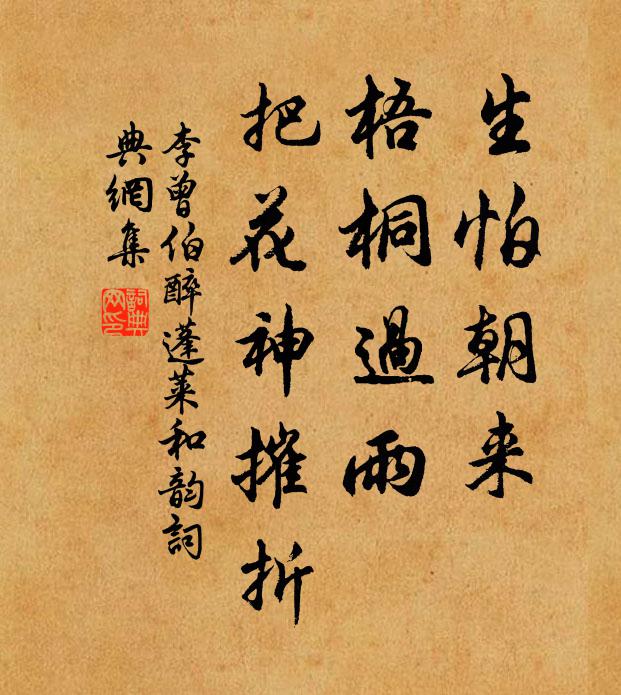 生怕朝来
梧桐過雨
把花神摧折
李曾伯醉蓬莱和韵詞
典網集
詞典
网印